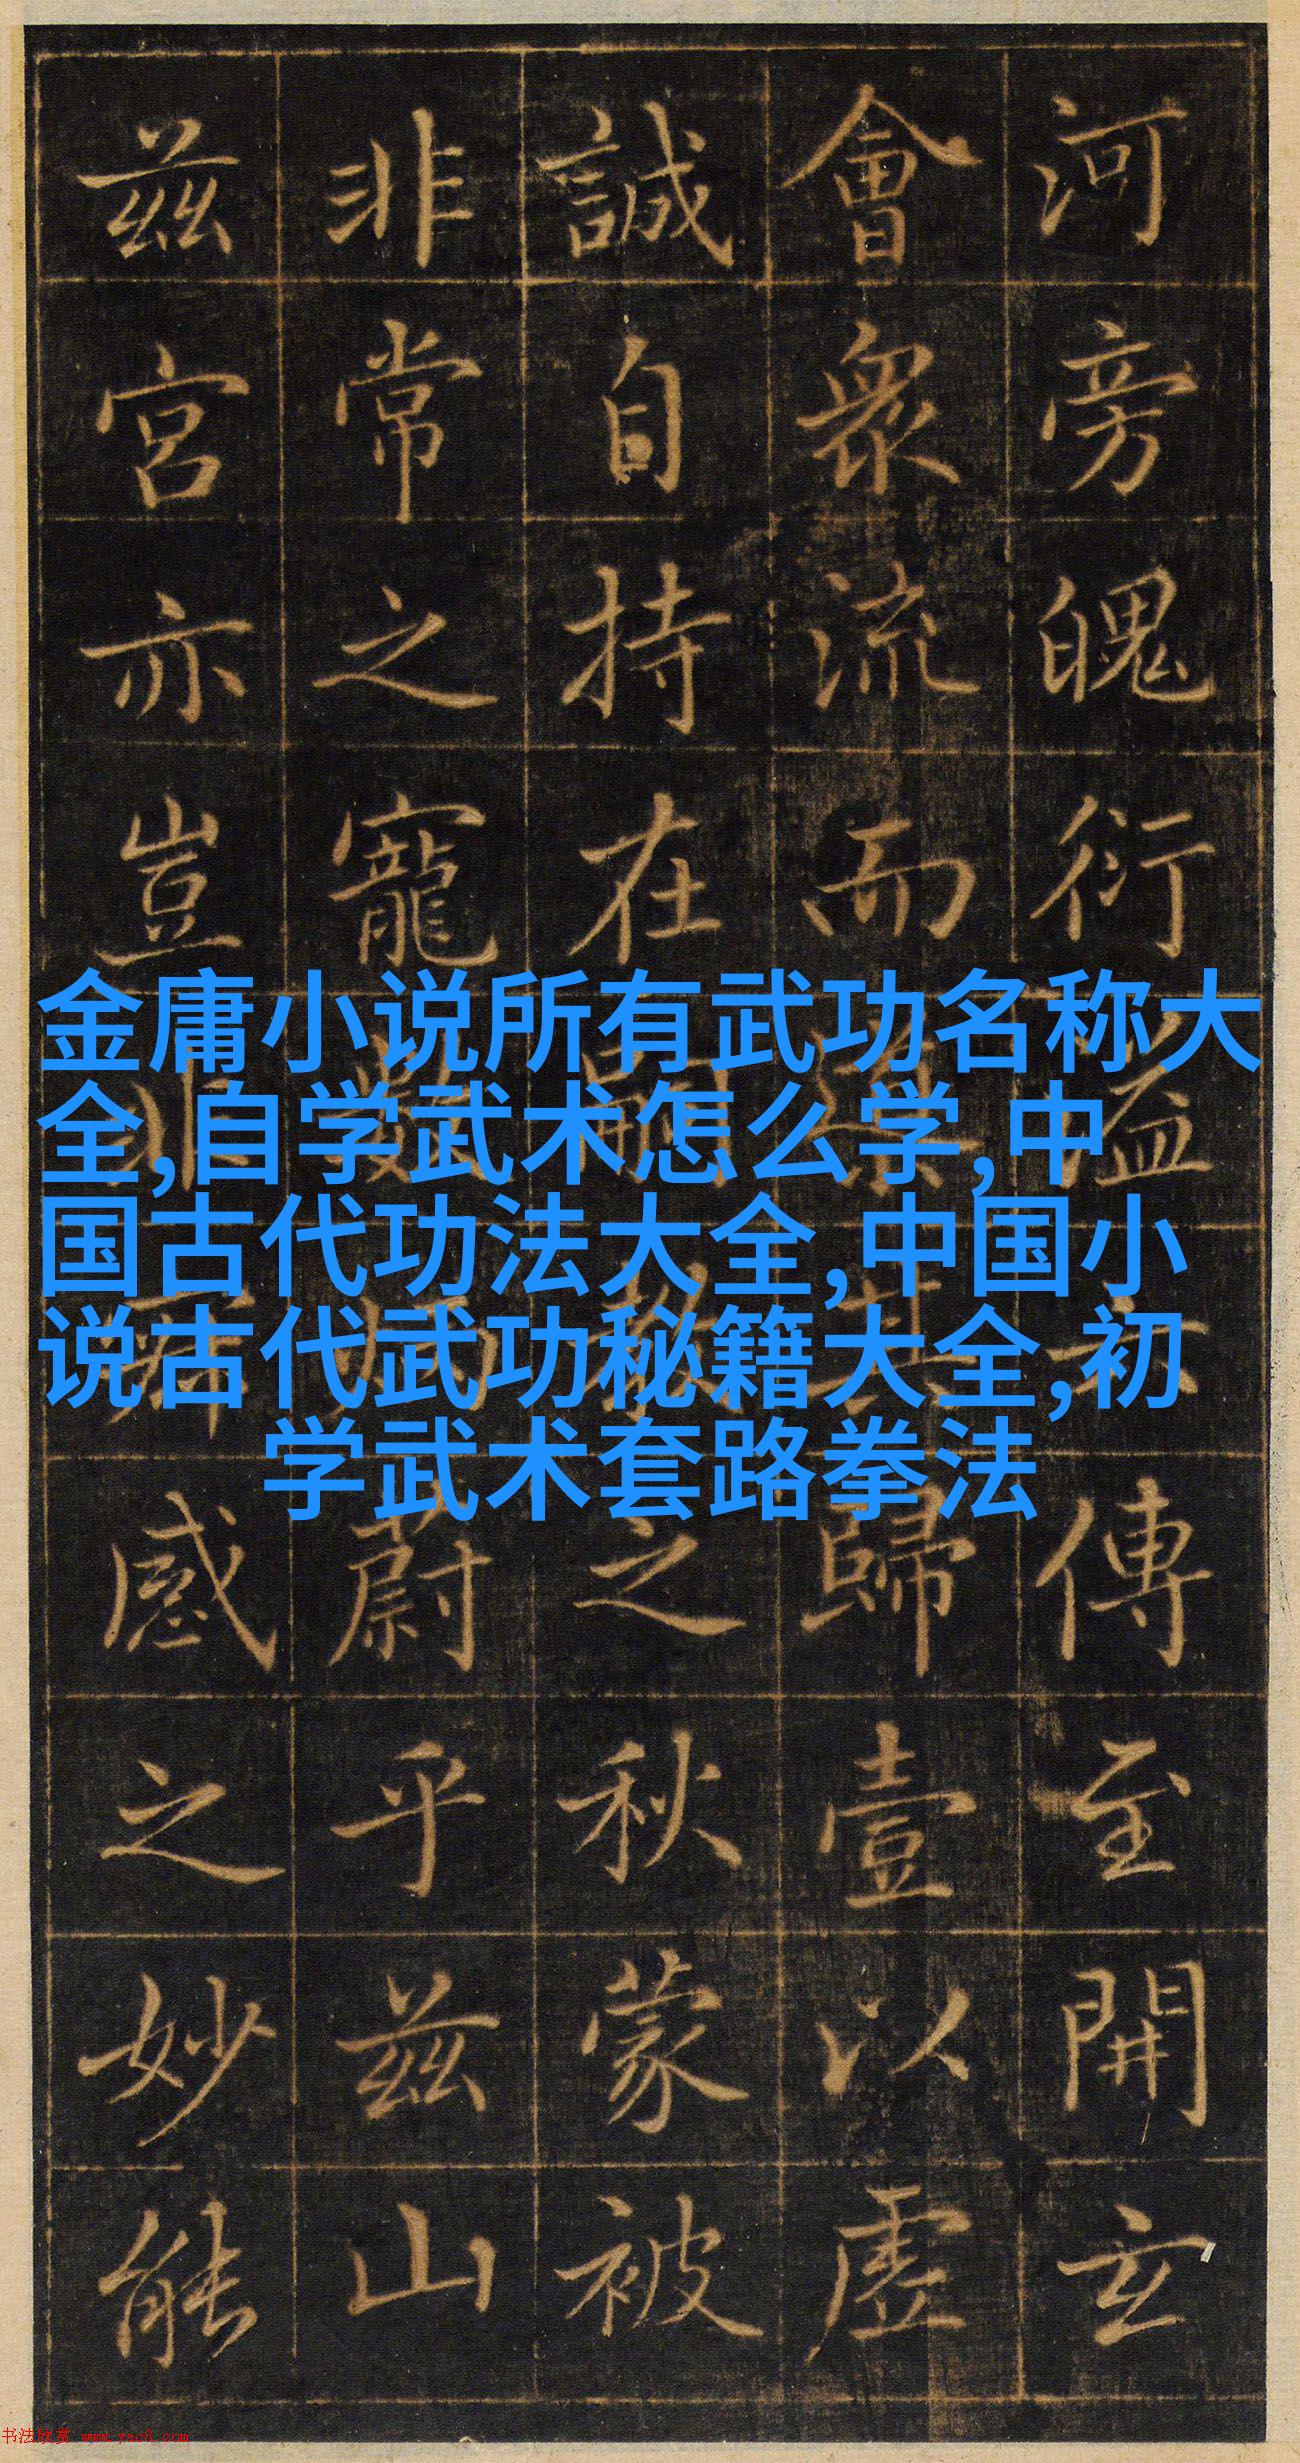 金庸小说所有武功名称大
全,自学武术怎么学,中
国古代功法大全,中国小
说古代武功秘籍大全,初
学武术套路拳法
河旁魄衍溢傳至開玄
會衆流而其歸壹以虛
誠自持在嗣之秋蒙被
非常之寵數蔚乎茲山
茲宮亦豈非感之妙能
书法欣赏 www.yac8.com